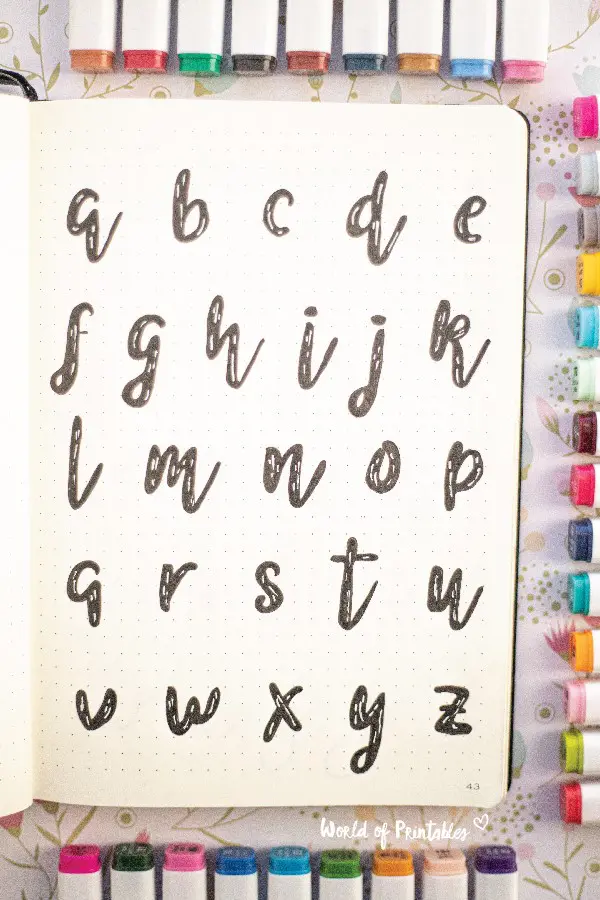 a b c d e
f g h i j k
l m n o p
q r s t u
v w x y z
43
World of Printables